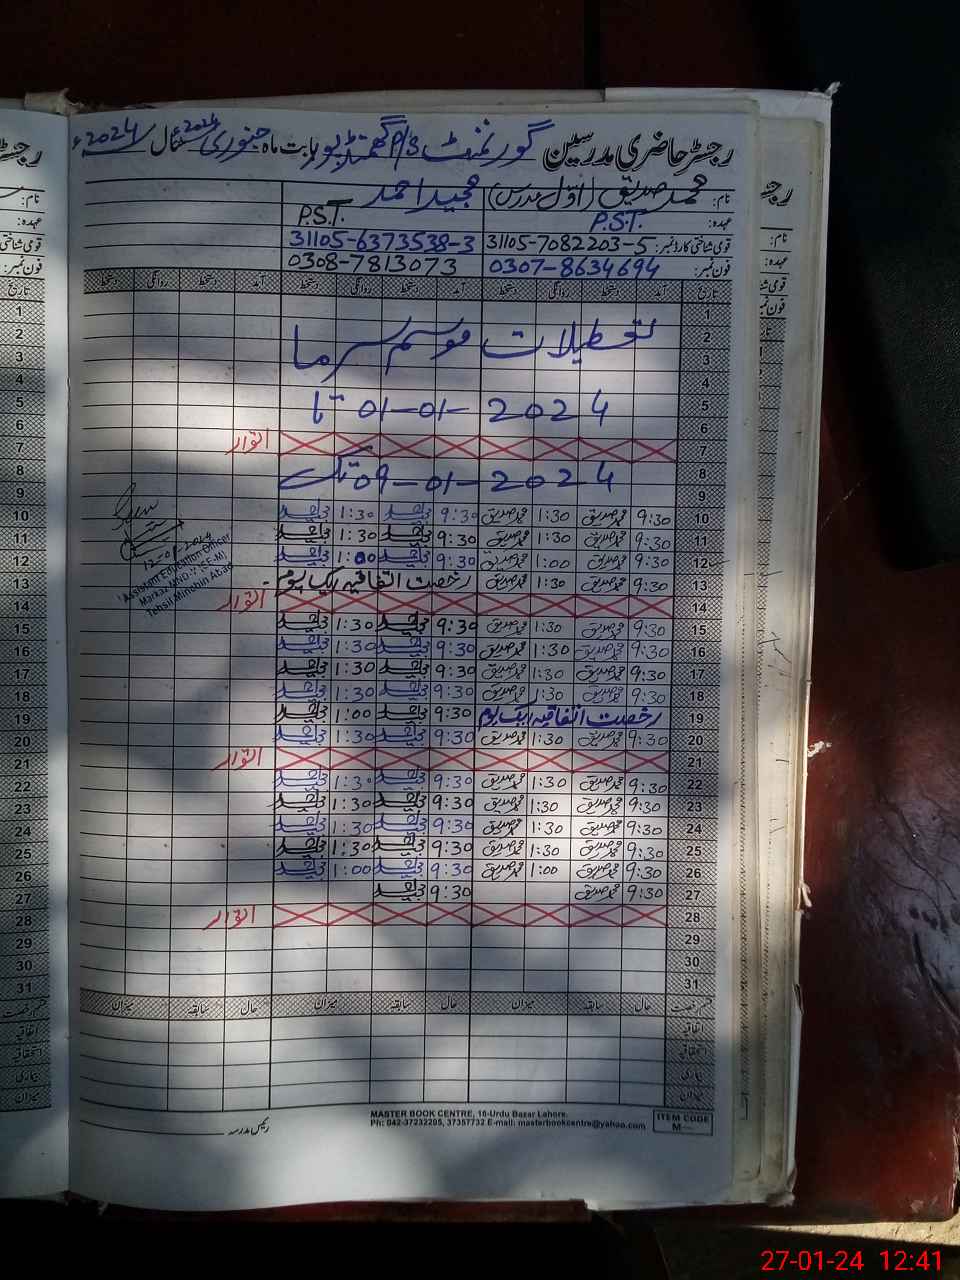 رجسٹر حاضری مدرسین گورنمنٹ P/S گھمنڈپور بابت ماہ جنوری 2024ء سال 2024ء
نام: محمد صدیق (اوّل مدرس) مجید احمد
عہدہ: P.S.T. P.S.T.
قومی شناختی کارڈ نمبر: 31105-7082203-5 31105-6373538-3
فون نمبر: 0307-8634694 0308-7813073
تاریخ آمد دستخط روانگی دستخط آمد دستخط روانگی دستخط آمد دستخط روانگی دستخط
1
2 تعطیلات موسم سرما
3
4
5 01-01-2024 تا
6
7 اتوار
8 09-01-2024 تک
9
10 9:30 محمد صدیق 1:30 محمد صدیق 9:30 1:30
11 9:30 محمد صدیق 11:30 محمد صدیق 9:30 1:30
12 9:30 محمد صدیق 1:00 محمد صدیق 9:30 1:00
13 9:30 محمد صدیق 1:30 محمد صدیق رخصت اتفاقیہ ایک یوم
14 اتوار
12-01-2024
Assistant Education Officer
Tehsil Minchin Abad
15 9:30 محمد صدیق 1:30 محمد صدیق 9:30 1:30
16 9:30 محمد صدیق 1:30 محمد صدیق 9:30 1:30
17 9:30 محمد صدیق 1:30 محمد صدیق 9:30 1:30
18 9:30 محمد صدیق 1:30 محمد صدیق 9:30 1:30
19 رخصت اتفاقیہ ایک یوم 9:30 1:00
20 9:30 محمد صدیق 1:30 محمد صدیق 9:30 1:30
21 اتوار
22 9:30 محمد صدیق 1:30 محمد صدیق 9:30 1:30
23 9:30 محمد صدیق 1:30 محمد صدیق 9:30 1:30
24 9:30 محمد صدیق 1:30 محمد صدیق 9:30 1:30
25 9:30 محمد صدیق 1:30 محمد صدیق 9:30 1:30
26 9:30 محمد صدیق 1:00 محمد صدیق 9:30 1:00
27 9:30 محمد صدیق 9:30
28 اتوار
29
30
31
قسم رخصت حال سابقہ میزان حال سابقہ میزان حال سابقہ میزان
اتفاقیہ
استحقاقیہ
بیماری
میزان
رئیس مدرسہ
MASTER BOOK CENTRE, 16-Urdu Bazar Lahore.
Ph: 042-37232205, 37357732 E-mail: masterbookcentre@yahoo.com
ITEM CODE
M
27-01-24 12:41